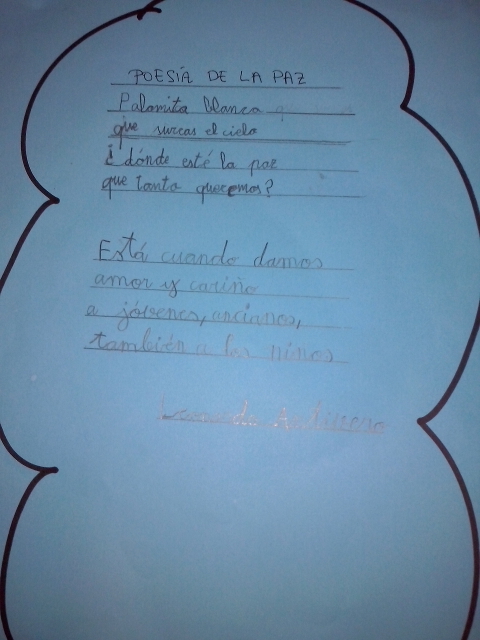 POESÍA DE LA PAZ
Palomita blanca
que surcas el cielo
¿dónde esté la paz
que tanta queremos?
Está cuando damos
amor y cariño
a jóvenes, ancianos,
también a los niños